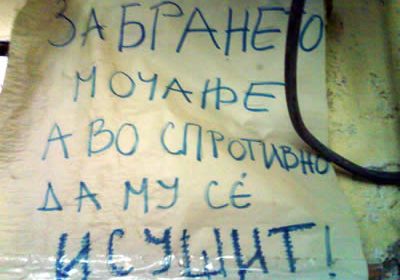 ЗАБРАНЕТО
МОЧАЊЕ
А ВО СПРОТИВНО
ДА МУ СЁ
ИСУШИТ!